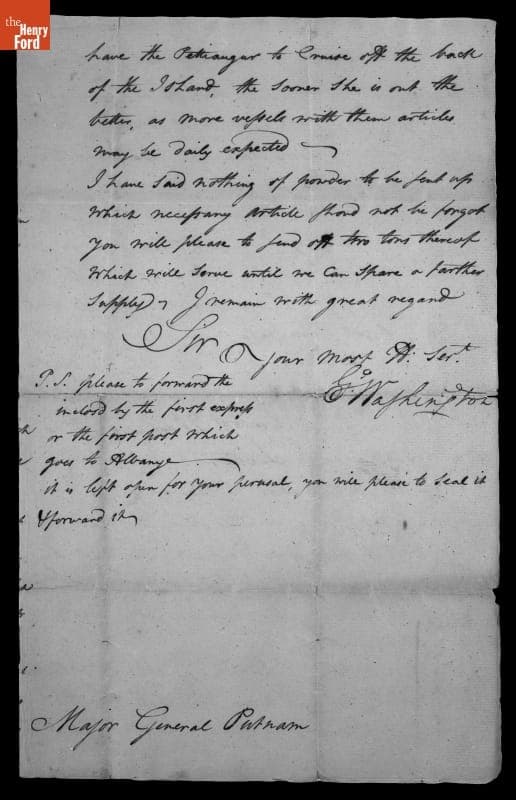 the
Henry
Ford
have the Pettiaugur to Cruise off the back
of the Island, the sooner She is out the
better, as more vessels with them articles
may be daily expected
I have said nothing of powder to be sent up
which necessary article shoud not be forgot
you will please to send off two tons thereof
which will serve until we can spare a farther
supply, I remain with great regard
Sir
your most H: Sert.
Go. Washington
P.S. please to forward the
inclosd by the first express
or the first post which
goes to Albanye
it is left open for your perusal, you will please to seal it
& forward it
Major General Putnam